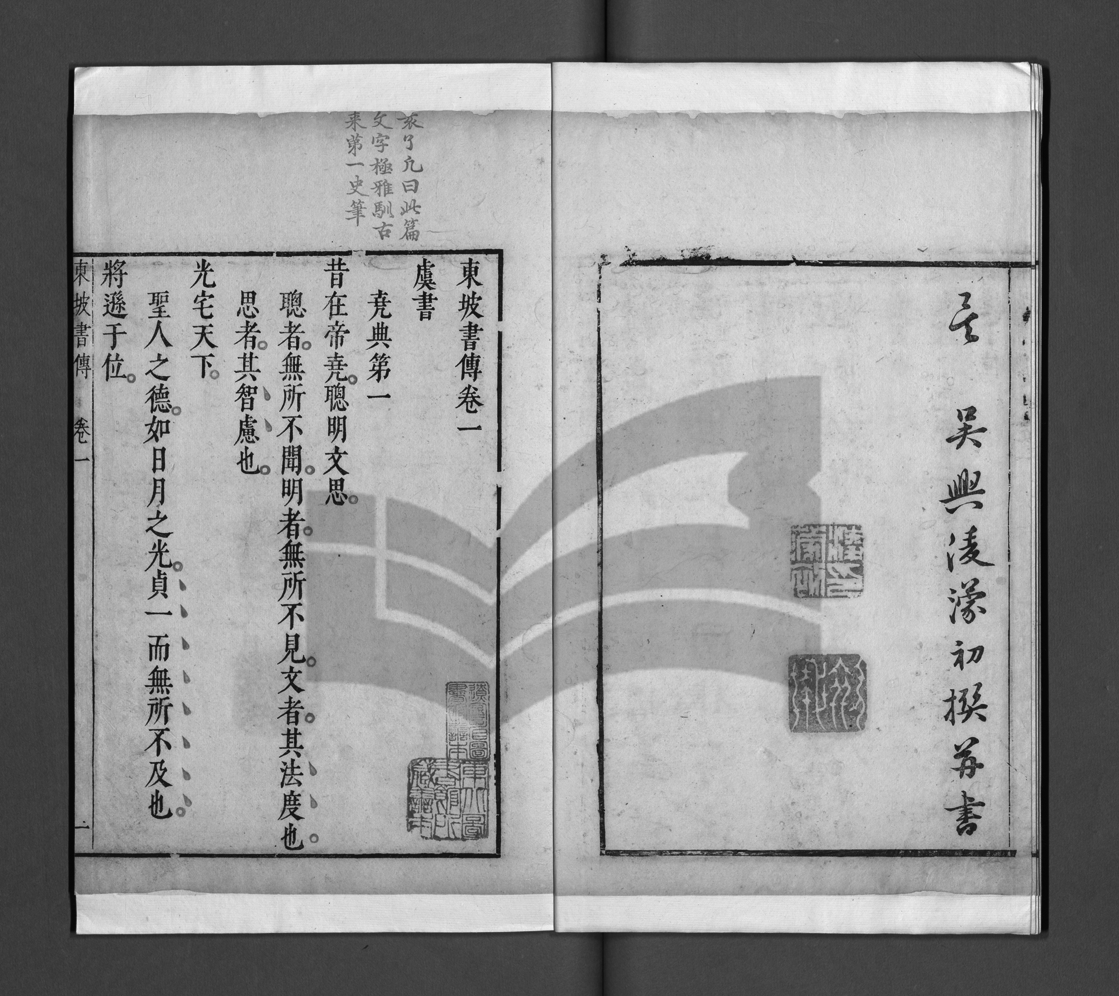 言 吳興淩濛初撰并書
袁了凡曰此篇
文字極雅馴古
來第一史筆
東坡書傳卷一
虞書
堯典第一
昔在帝堯聰明文思
聰者無所不聞明者無所不見文者其法度也
思者其智慮也
光宅天下
聖人之德如日月之光貞一而無所不及也
將遜于位
東坡書傳 卷一 一